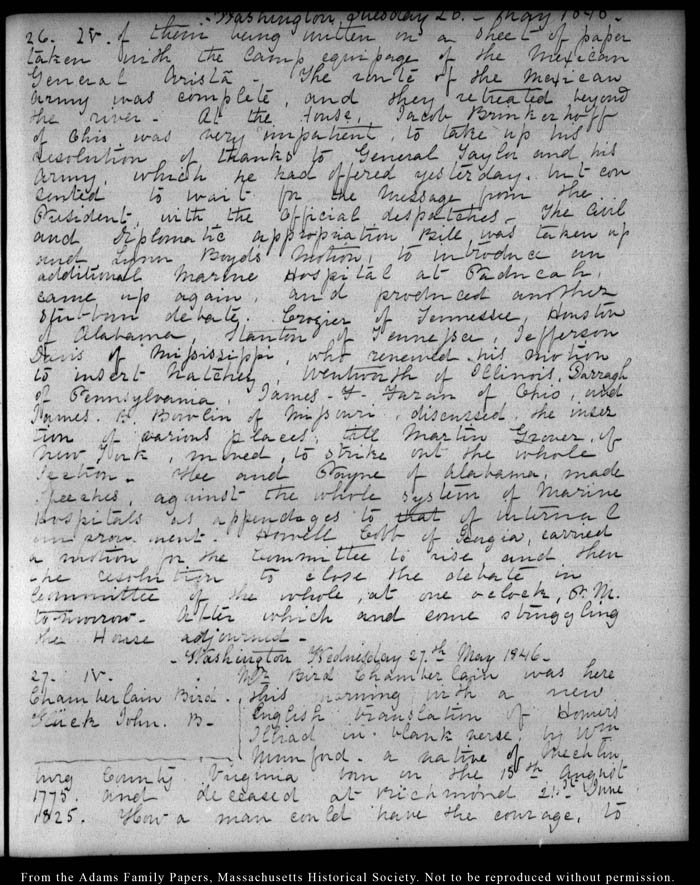 Washington, Tuesday 26. May 1846.
26. IV. of them being written on a sheet of paper
taken with the camp equipage of the Mexican
General Arista. The route of the Mexican
Army was complete, and they retreated beyond
the river. At the House, Jacob Brinkerhoff
of Ohio was very impatient, to take up his
resolution of thanks to General Taylor and his
Army, which he had offered yesterday. but con
sented to wait for the Message from the
President, with the Official despatches. The Civil
and Diplomatic appropriation Bill was taken up
and Linn Boyd's Motion, to introduce an
additional Marine Hospital at Paducah,
came up again, and produced another
stubborn debate. Crozier of Tennessee, Houston
of Alabama, Stanton of Tennessee, Jefferson
Davis of Mississippi, who renewed his motion
to insert Natchez, Wentworth of Illinois, Darragh
of Pennsylvania, James J. Faran of Ohio, and
James B. Bowlin of Missouri, discussed, the inser
tion of various places; till Martin Grover, of
New York, moved, to strike out the whole
Section. He and Payne of Alabama, made
speeches, against the whole system of Marine
Hospitals as appendages to that of internal
improvement. Howell Cobb of Georgia, carried
a motion for the Committee to rise and then
the resolution to close the debate in
Committee of the whole, at one o'clock, P.M.
to-morrow. After which and some struggling
the House adjourned.
Washington Wednesday 27.th May 1846.
27. IV. Mr Bird Chamberlain was here
Chamberlain Bird. this morning with a new
Glück John. B- English translation of Homers
Iliad in blank verse, by Wm
Munford. a native of Mecklen
burg County Virginia born on the 15th August
1775 and deceased at Richmond 21st June
1825. How a man could have the courage, to
From the Adams Family Papers, Massachusetts Historical Society. Not to be reproduced without permission.